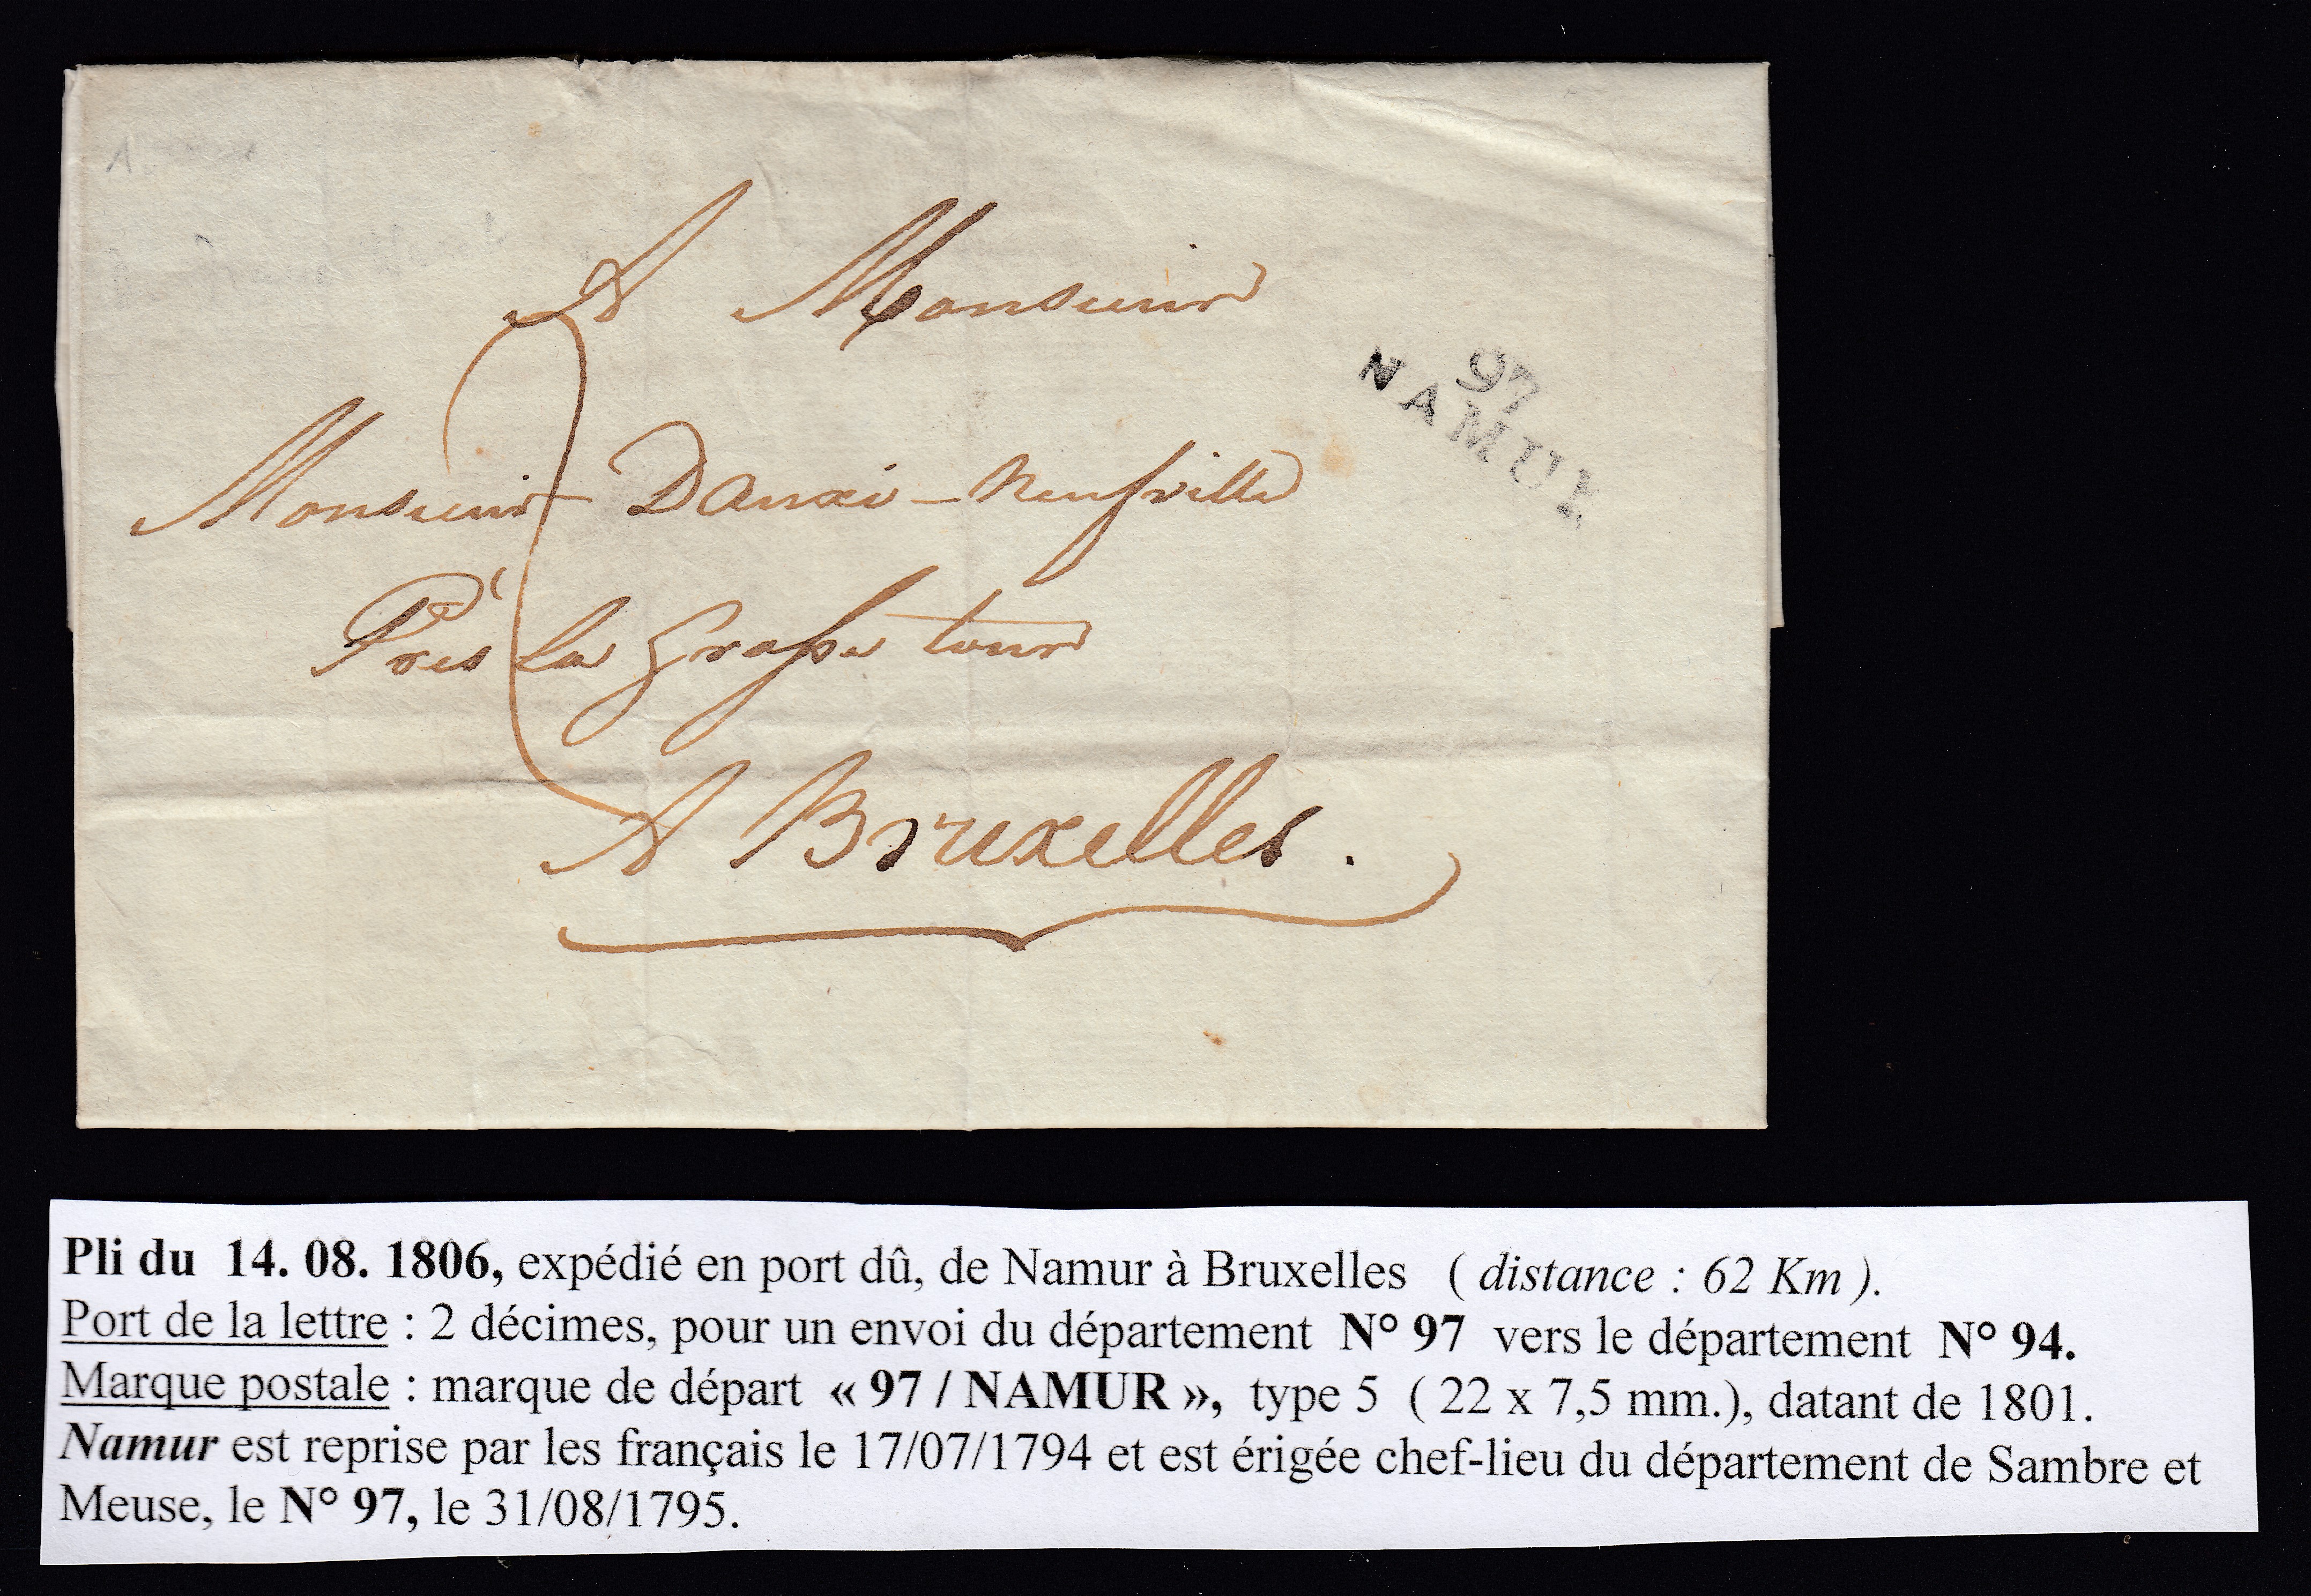 A Monsieur
97
NAMUR
Monsieur Danxi - Neufville
Près la Grosse tour
2
A Bruxelles.
Pli du 14. 08. 1806, expédié en port dû, de Namur à Bruxelles ( distance : 62 Km ).
Port de la lettre : 2 décimes, pour un envoi du département N° 97 vers le département N° 94.
Marque postale : marque de départ « 97 / NAMUR », type 5 ( 22 x 7,5 mm.), datant de 1801.
Namur est reprise par les français le 17/07/1794 et est érigée chef-lieu du département de Sambre et
Meuse, le N° 97, le 31/08/1795.